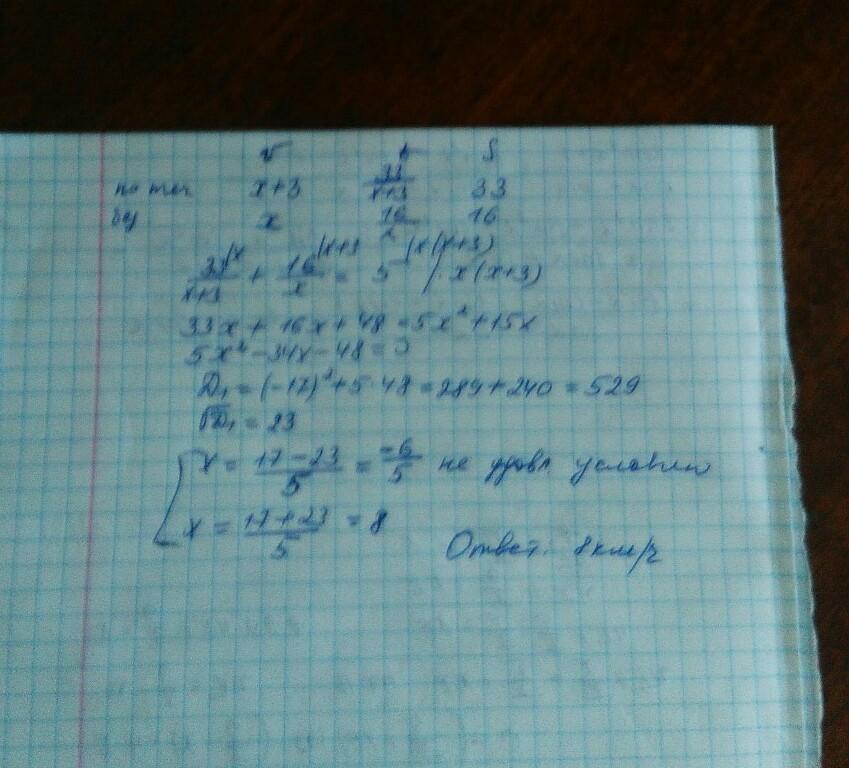 v t S
по теч x+3 33/(x+3) 33
x 16/x 16
33/(x+3) + 16/x = 5 | · x(x+3)
33x + 16x + 48 = 5x² + 15x
5x² - 34x - 48 = 0
D₁ = (-17)² + 5·48 = 289 + 240 = 529
√D₁ = 23
x = (17-23)/5 = -6/5 не удовл. условию
x = (17+23)/5 = 8
Ответ: 8 км/ч